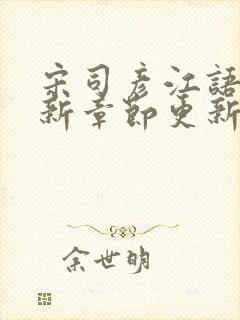 宋司彥江語
新章節更新
余世明